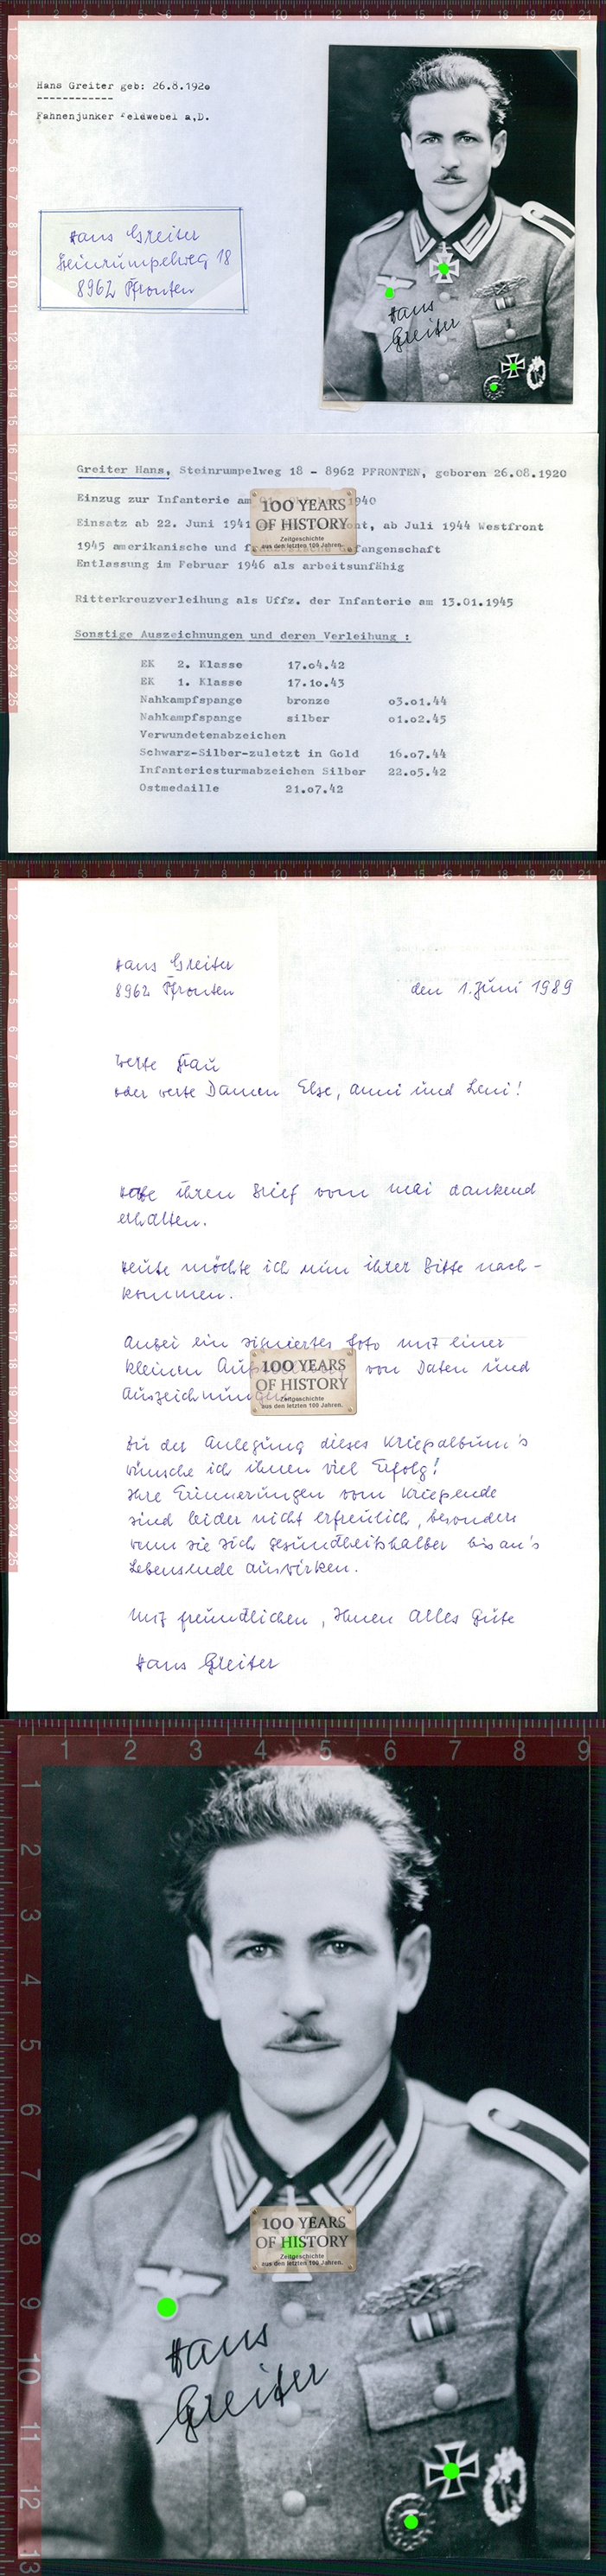 Hans Greiter geb: 26.8.1920
Fahnenjunker Feldwebel a,D.
Hans Greiter
Steinrumpelweg 18
8962 Pfronten
Hans
Greiter
Greiter Hans, Steinrumpelweg 18 - 8962 PFRONTEN, geboren 26.08.1920
Einzug zur Infanterie am 1940
Einsatz ab 22. Juni 1941 ab Juli 1944 Westfront
1945 amerikanische und
Entlassung im Februar 1946 als arbeitsunfähig
100 YEARS
OF HISTORY
Zeitgeschichte
aus den letzten 100 Jahren.
Ritterkreuzverleihung als Uffz. der Infanterie am 13.01.1945
Sonstige Auszeichnungen und deren Verleihung :
EK 2. Klasse 17.04.42
EK 1. Klasse 17.1o.43
Nahkampfspange bronze o3.01.44
Nahkampfspange silber o1.02.45
Verwundetenabzeichen
Schwarz-Silber-zuletzt in Gold 16.07.44
Infanteriesturmabzeichen Silber 22.o5.42
Ostmedaille 21.o7.42
Hans Greiter
8962 Pfronten
den 1. Juni 1989
Werte Frau
oder werte Damen Else, Anni und Leni!
Habe ihren Brief vom Mai dankend
erhalten.
Heute möchte ich nun ihrer Bitte nach-
kommen.
Anbei ein signiertes Foto mit einer
kleinen von Daten und
Auszeichnungen.
100 YEARS
OF HISTORY
Zeitgeschichte
aus den letzten 100 Jahren.
Zu der Anlegung dieses Kriegsalbum's
wünsche ich ihnen viel Erfolg!
Ihre Erinnerungen vom Kriegsende
sind leider nicht erfreulich, besonders
wenn sie sich gesundheitshalber bis an's
Lebensende auswirken.
Mit freundlichen, Ihnen Alles Gute
Hans Greiter
100 YEARS
OF HISTORY
Zeitgeschichte
aus den letzten 100 Jahren.
Hans
Greiter